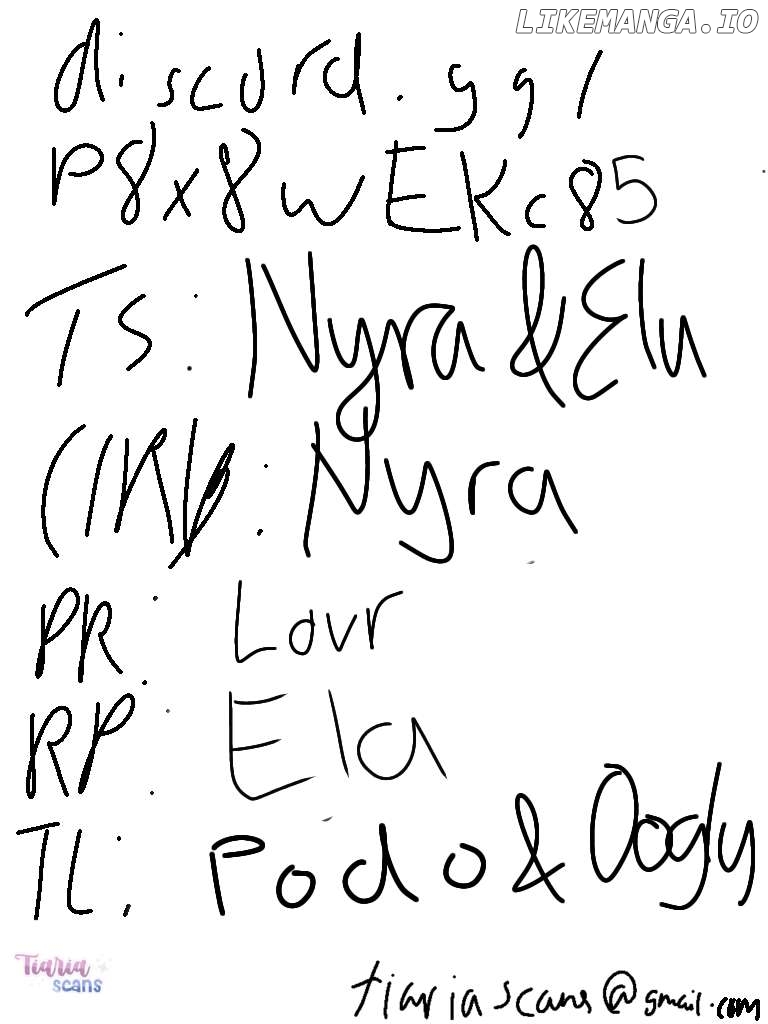 LIKEMANGA.IO
discord.gg/
P8x8wEKc85
TS: Nyra & Ela
Nyra
PR: Lovr
RP: Ela
TL: Podo & Oogly
Tiaria
scans
tiariascans@gmail.com